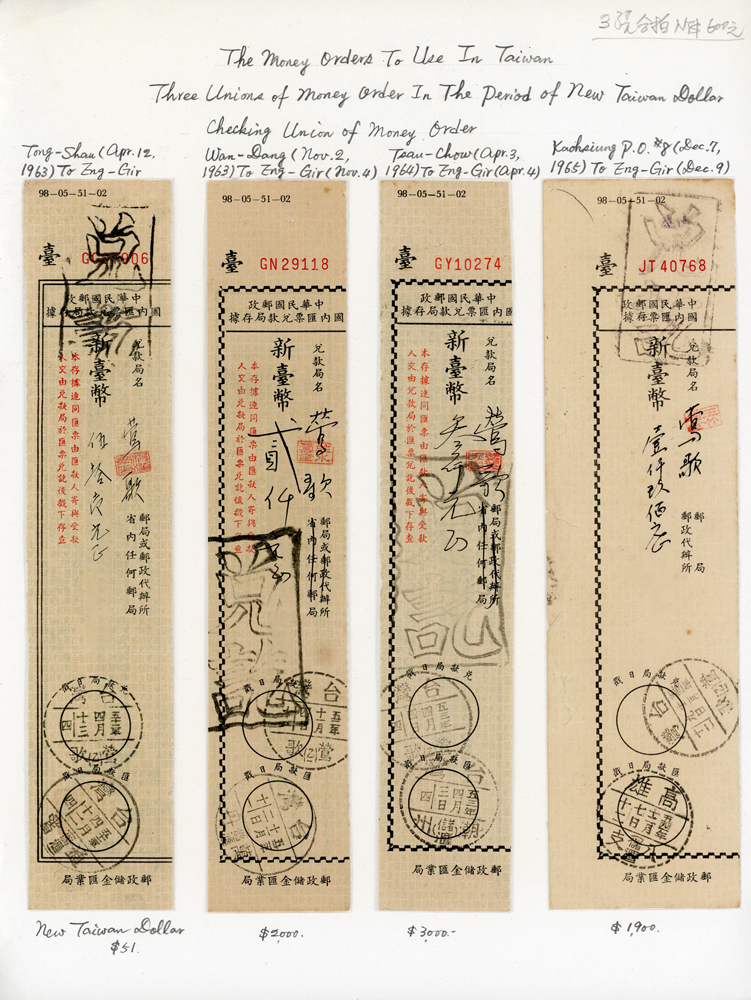 The Money Orders To Use In Taiwan
Three Unions of Money Order In The Period of New Taiwan Dollar
Checking Union of Money Order
Tong-Shau (Apr. 12, 1963) To Eng-Gir
Wan-Dang (Nov. 2, 1963) To Eng-Gir (Nov. 4)
Tsau-Chow (Apr. 3, 1964) To Eng-Gir (Apr. 4)
Kaohsiung P.O. #8 (Dec. 7, 1965) To Eng-Gir (Dec. 9)
98-05-51-02
臺
中華民國郵政
國內匯票兌款局存據
兌款局名
鶯歌
郵局或郵政代辦所
省內任何郵局
新臺幣
本存據連同匯票由匯款人寄與受款
人交由兌款局於匯票兌訖後截下存查
兌款局日戳
匯款局日戳
郵政儲金匯業局
New Taiwan Dollar
$51.
98-05-51-02
臺 GN29118
中華民國郵政
國內匯票兌款局存據
兌款局名
鶯歌
郵局或郵政代辦所
省內任何郵局
新臺幣
貳仟
本存據連同匯票由匯款人寄與受款
人交由兌款局於匯票兌訖後截下存查
匯款局日戳
郵政儲金匯業局
$2,000.
98-05-51-02
臺 GY10274
中華民國郵政
國內匯票兌款局存據
兌款局名
鶯歌
郵局或郵政代辦所
省內任何郵局
新臺幣
本存據連同匯票由匯款人寄與受款
人交由兌款局於匯票兌訖後截下存查
兌款局日戳
匯款局日戳
郵政儲金匯業局
$3,000.-
98-05-51-02
臺 JT40768
中華民國郵政
國內匯票兌款局存據
兌款局名
鶯歌
郵局
郵政代辦所
新臺幣
壹仟玖佰元
兌款局日戳
匯款局日戳
高雄
郵政儲金匯業局
$1,900.